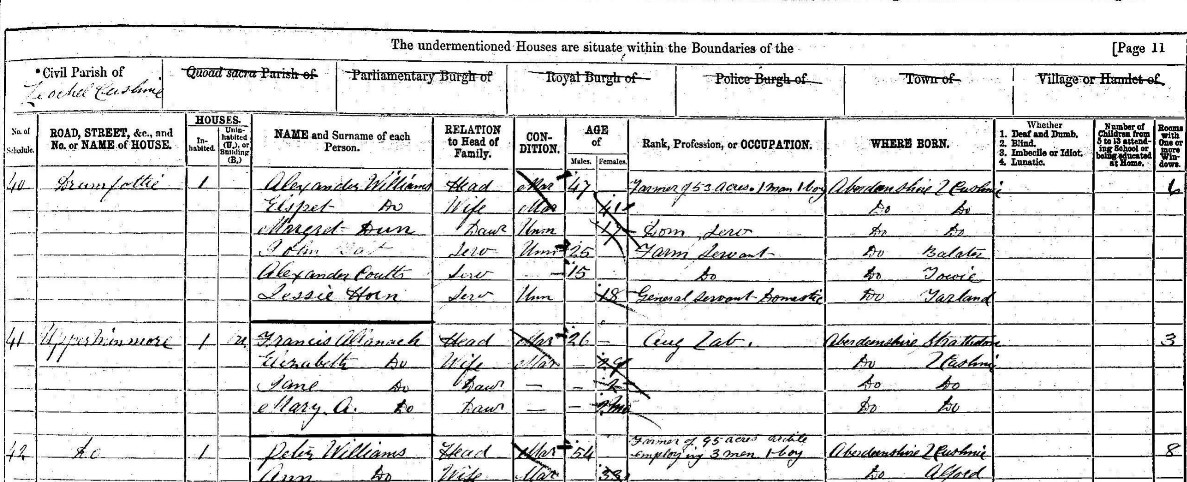 The undermentioned Houses are situate within the Boundaries of the [Page 11
Civil Parish of Quoad sacra Parish of Parliamentary Burgh of Royal Burgh of Police Burgh of Town of Village or Hamlet of
Cushnie
No. of Schedule. ROAD, STREET, &c., and No. or NAME of HOUSE. HOUSES. Inhabited. Uninhabited (U.), or Building (B.) NAME and Surname of each Person. RELATION to Head of Family. CONDITION. AGE of Males. Females. Rank, Profession, or OCCUPATION. WHERE BORN. Whether 1. Deaf and Dumb. 2. Blind. 3. Imbecile or Idiot. 4. Lunatic. Number of Children from 5 to 13 attending School or being educated at Home. Rooms with One or more Windows.
40 Drumfottie 1 Alexander Williams Head Mar 47 Farmer of 53 acres. 1 man 1 boy Aberdeenshire L Cushnie 6
Elspet Do Wife Mar 41 Do Do
Margret Dun Daur Unm 17 Dom Serv Do Do
John Serv Unm 25 Farm Servant Do Balater
Alexander Coutts Serv — 15 Do Do Towie
Jessie Horn Serv Unm 18 General Servant Domestic Do Tarland
41 1 Francis Head Mar 26 Ag Lab. Aberdeenshire Strathdon 3
Elizabeth Do Wife Mar Do L Cushnie
Jane Do Daur — Do Do
Mary A. Do Daur — Do Do
42 Do 1 Peter Williams Head Mar 54 Farmer of 95 acres arable employing 3 men 1 boy Aberdeenshire L Cushnie 8
Ann Do Wife Mar Do Alford